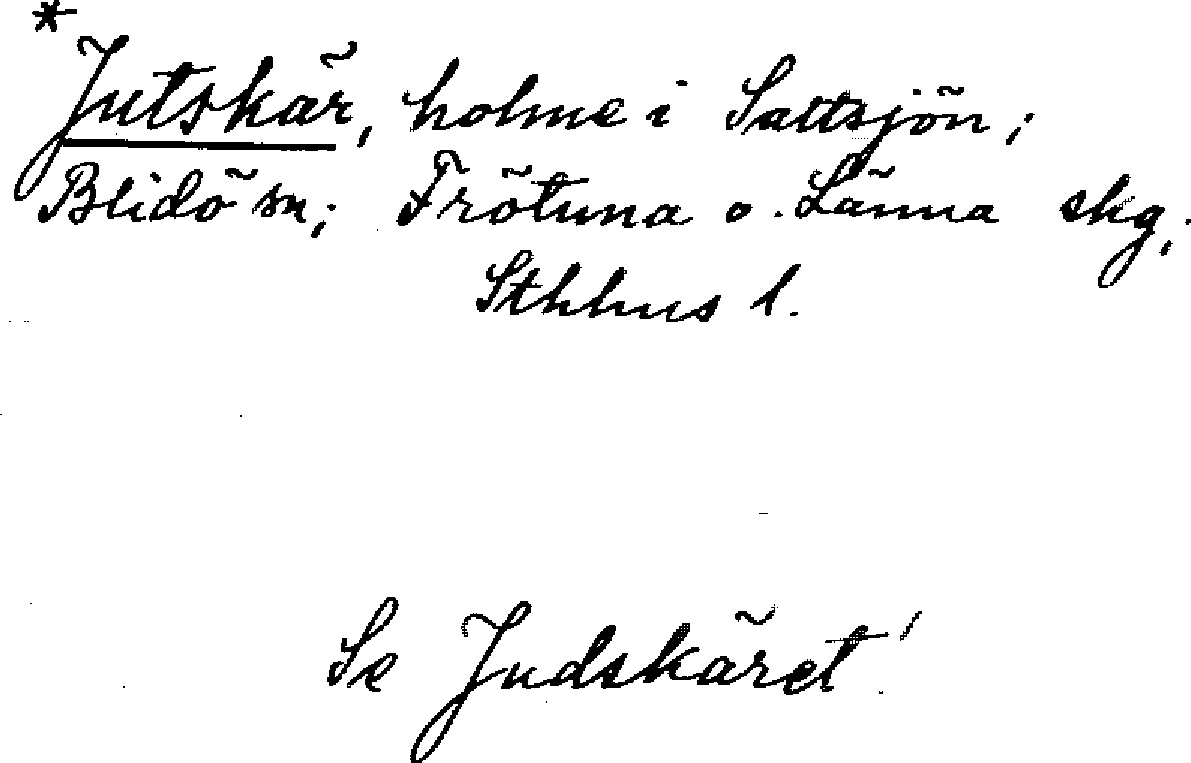 *
Jutskär, holme i Saltsjön;
Blidö sn; Frötuna o. Länna skg,
Sthlms l.
Se Judskäret!